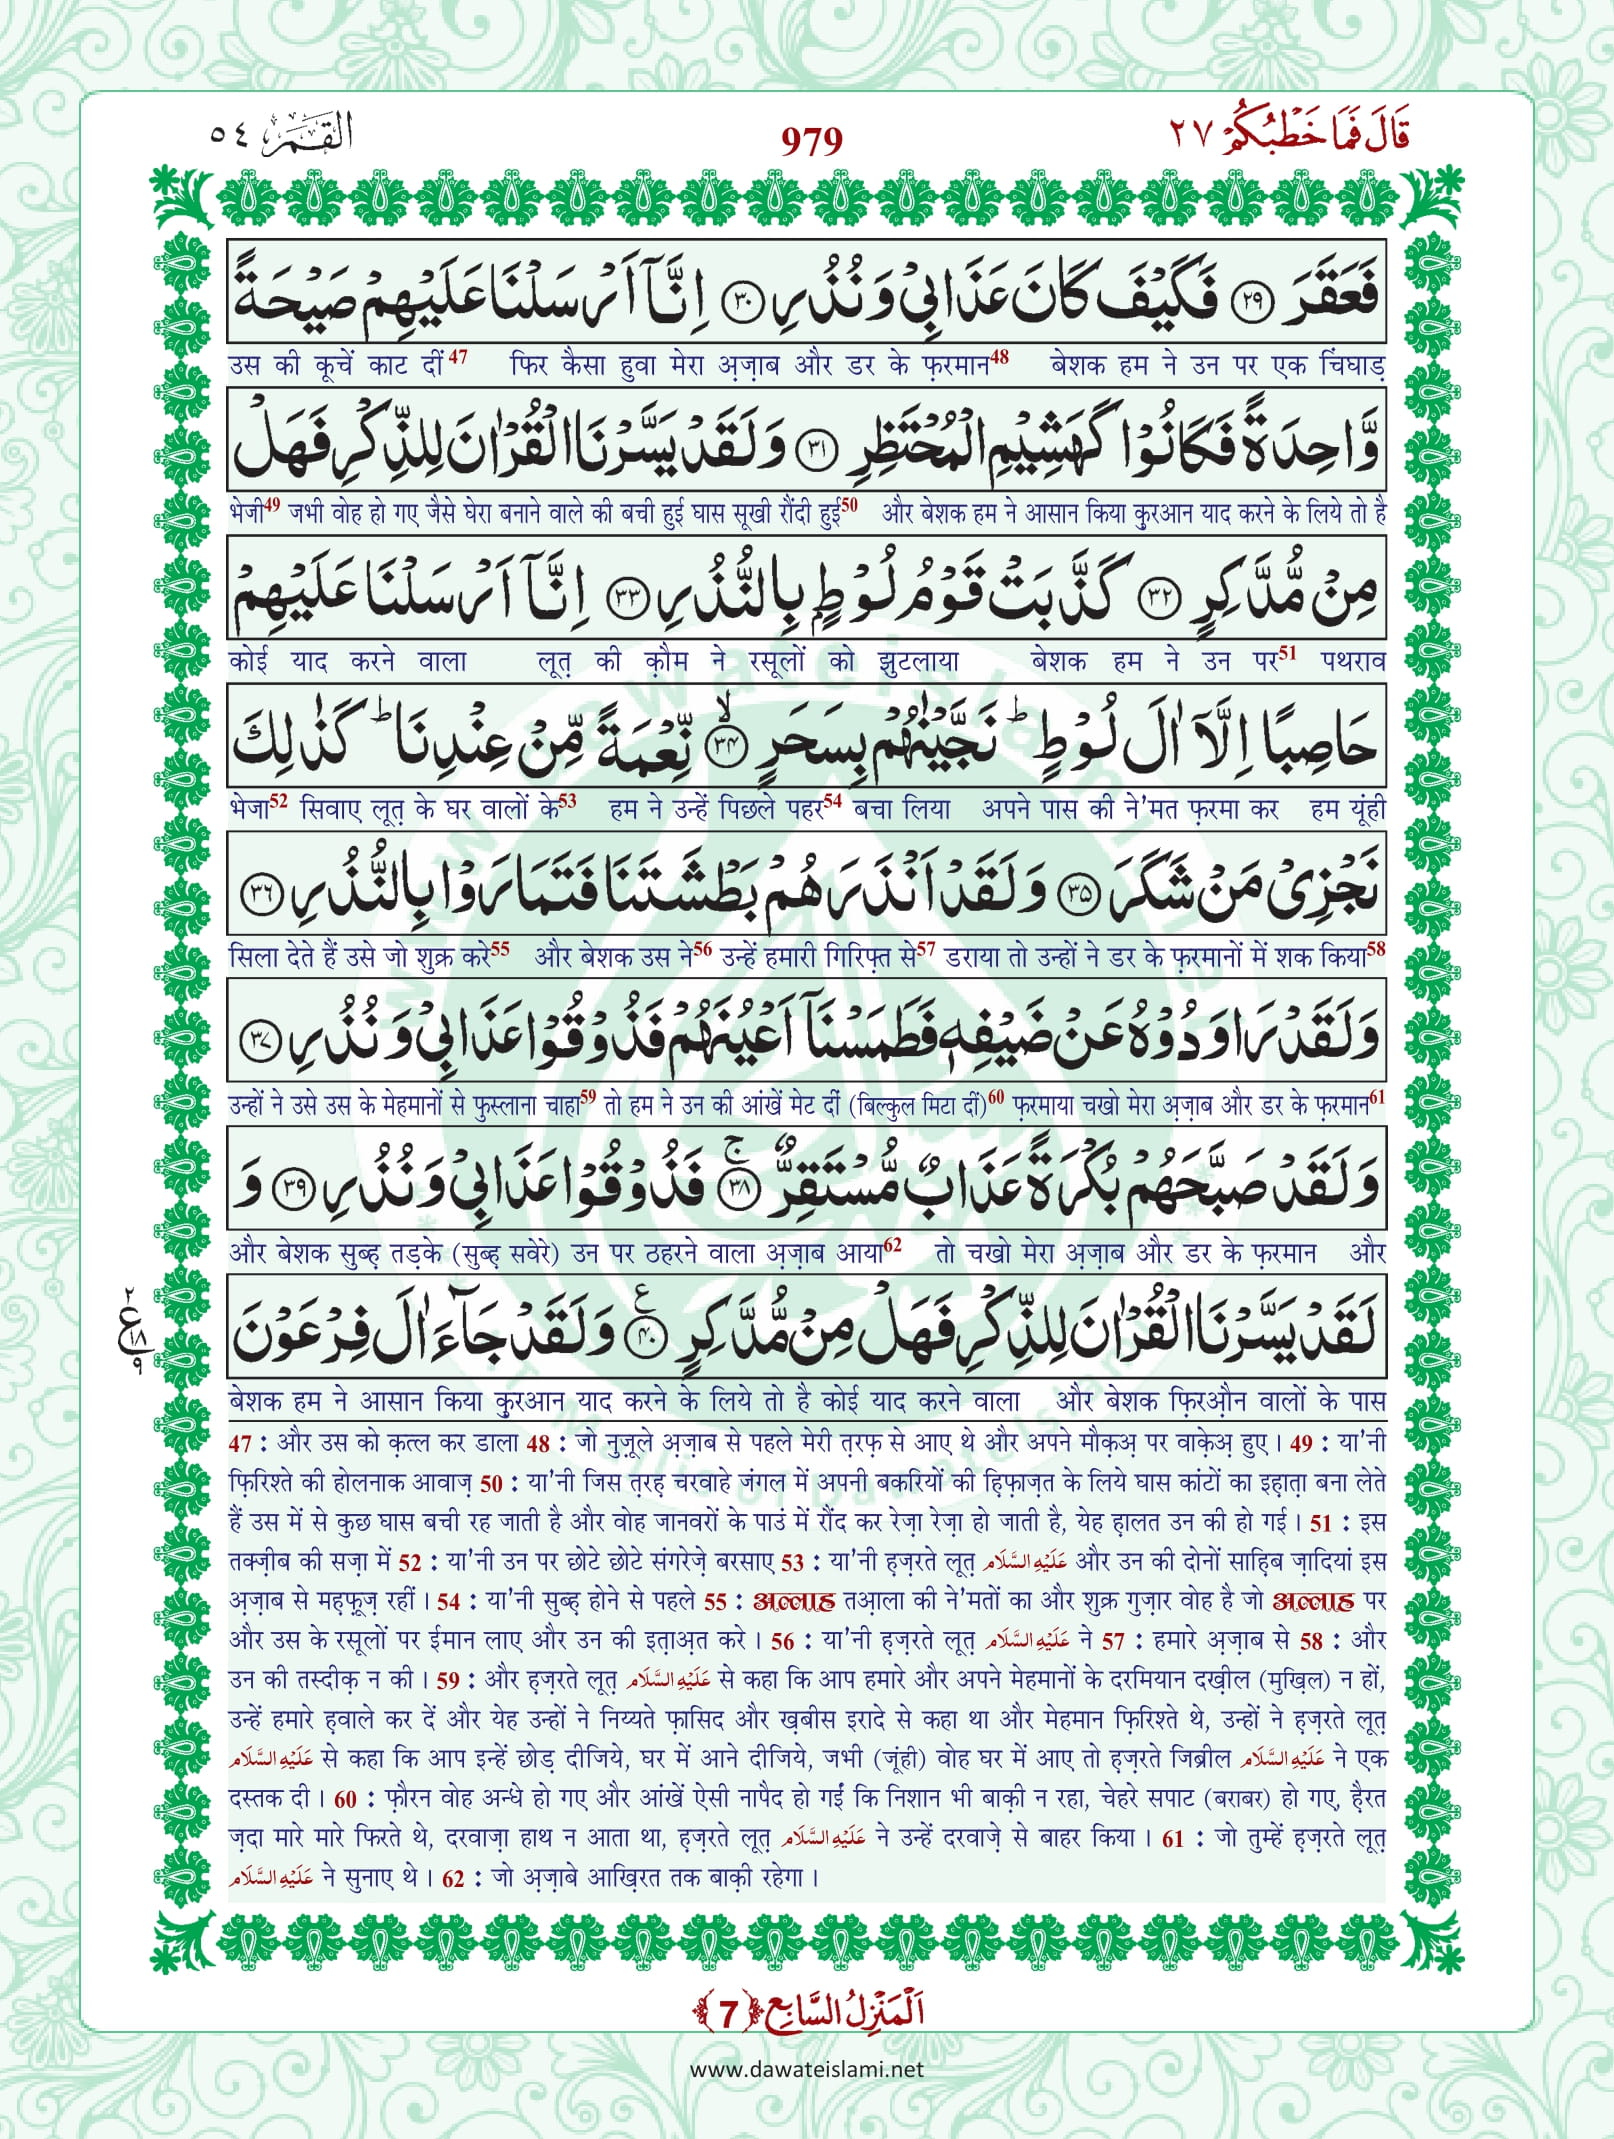 قَالَ فَمَا خَطْبُكُمْ ٢٧
979
القمر ٥٤
فَعَقَرَ ﴿٢٩﴾ فَكَيْفَ كَانَ عَذَابِیْ وَ نُذُرِ ﴿٣٠﴾ اِنَّاۤ اَرْسَلْنَا عَلَیْهِمْ صَیْحَةً
उस की कूचें काट दीं47 फिर कैसा हुवा मेरा अ़ज़ाब और डर के फ़रमान48 बेशक हम ने उन पर एक चिंघाड़
وَّاحِدَةً فَكَانُوْا كَهَشِیْمِ الْمُحْتَظِرِ ﴿٣١﴾ وَ لَقَدْ یَسَّرْنَا الْقُرْاٰنَ لِلذِّكْرِ فَهَلْ
भेजी49 जभी वोह हो गए जैसे घेरा बनाने वाले की बची हुई घास सूखी रौंदी हुई50 और बेशक हम ने आसान किया क़ुरआन याद करने के लिये तो है
مِنْ مُّدَّكِرٍ ﴿٣٢﴾ كَذَّبَتْ قَوْمُ لُوْطٍۭ بِالنُّذُرِ ﴿٣٣﴾ اِنَّاۤ اَرْسَلْنَا عَلَیْهِمْ
कोई याद करने वाला लूत़ की क़ौम ने रसूलों को झुटलाया बेशक हम ने उन पर51 पथराव
حَاصِبًا اِلَّاۤ اٰلَ لُوْطٍؕ نَجَّیْنٰهُمْ بِسَحَرٍۙ ﴿٣٤﴾ نِّعْمَةً مِّنْ عِنْدِنَاؕ كَذٰلِكَ
भेजा52 सिवाए लूत़ के घर वालों के53 हम ने उन्हें पिछले पहर54 बचा लिया अपने पास की ने'मत फ़रमा कर हम यूंही
نَجْزِیْ مَنْ شَكَرَ ﴿٣٥﴾ وَ لَقَدْ اَنْذَرَهُمْ بَطْشَتَنَا فَتَمَارَوْا بِالنُّذُرِ ﴿٣٦﴾
सिला देते हैं उसे जो शुक्र करे55 और बेशक उस ने56 उन्हें हमारी गिरिफ़्त से57 डराया तो उन्हों ने डर के फ़रमानों में शक किया58
وَ لَقَدْ رَاوَدُوْهُ عَنْ ضَیْفِهٖ فَطَمَسْنَاۤ اَعْیُنَهُمْ فَذُوْقُوْا عَذَابِیْ وَ نُذُرِ ﴿٣٧﴾
उन्हों ने उसे उस के मेहमानों से फुस्लाना चाहा59 तो हम ने उन की आंखें मेट दीं (बिल्कुल मिटा दीं)60 फ़रमाया चखो मेरा अ़ज़ाब और डर के फ़रमान61
وَ لَقَدْ صَبَّحَهُمْ بُكْرَةً عَذَابٌ مُّسْتَقِرٌّۚ ﴿٣٨﴾ فَذُوْقُوْا عَذَابِیْ وَ نُذُرِ ﴿٣٩﴾ وَ
और बेशक सुब्ह़ तड़के (सुब्ह़ सवेरे) उन पर ठहरने वाला अ़ज़ाब आया62 तो चखो मेरा अ़ज़ाब और डर के फ़रमान और
لَقَدْ یَسَّرْنَا الْقُرْاٰنَ لِلذِّكْرِ فَهَلْ مِنْ مُّدَّكِرٍ۠ ﴿٤٠﴾ وَ لَقَدْ جَآءَ اٰلَ فِرْعَوْنَ
٢ ع ١٨ ٩
बेशक हम ने आसान किया क़ुरआन याद करने के लिये तो है कोई याद करने वाला और बेशक फ़िरऔ़न वालों के पास
47 : और उस को क़त्ल कर डाला 48 : जो नुज़ूले अ़ज़ाब से पहले मेरी त़रफ़ से आए थे और अपने मौक़अ़ पर वाक़ेअ़ हुए। 49 : या'नी
फ़िरिश्ते की होलनाक आवाज़ 50 : या'नी जिस त़रह़ चरवाहे जंगल में अपनी बकरियों की हि़फ़ाज़त के लिये घास कांटों का इह़ात़ा बना लेते
हैं उस में से कुछ घास बची रह जाती है और वोह जानवरों के पाउं में रौंद कर रेज़ा रेज़ा हो जाती है, येह ह़ालत उन की हो गई। 51 : इस
तक्ज़ीब की सज़ा में 52 : या'नी उन पर छोटे छोटे संगरेज़े बरसाए 53 : या'नी ह़ज़रते लूत़ عَلَیْهِ السَّلَام और उन की दोनों साह़िब ज़ादियां इस
अ़ज़ाब से मह़फ़ूज़ रहीं। 54 : या'नी सुब्ह़ होने से पहले 55 : अल्लाह तआ़ला की ने'मतों का और शुक्र गुज़ार वोह है जो अल्लाह पर
और उस के रसूलों पर ईमान लाए और उन की इत़ाअ़त करे। 56 : या'नी ह़ज़रते लूत़ عَلَیْهِ السَّلَام ने 57 : हमारे अ़ज़ाब से 58 : और
उन की तस्दीक़ न की। 59 : और ह़ज़रते लूत़ عَلَیْهِ السَّلَام से कहा कि आप हमारे और अपने मेहमानों के दरमियान दख़ील (मुख़िल) न हों,
उन्हें हमारे ह़वाले कर दें और येह उन्हों ने निय्यते फ़ासिद और ख़बीस इरादे से कहा था और मेहमान फ़िरिश्ते थे, उन्हों ने ह़ज़रते लूत़
عَلَیْهِ السَّلَام से कहा कि आप इन्हें छोड़ दीजिये, घर में आने दीजिये, जभी (जूंही) वोह घर में आए तो ह़ज़रते जिब्रील عَلَیْهِ السَّلَام ने एक
दस्तक दी। 60 : फ़ौरन वोह अन्धे हो गए और आंखें ऐसी नापैद हो गईं कि निशान भी बाक़ी न रहा, चेहरे सपाट (बराबर) हो गए, ह़ैरत
ज़दा मारे मारे फिरते थे, दरवाज़ा हाथ न आता था, ह़ज़रते लूत़ عَلَیْهِ السَّلَام ने उन्हें दरवाज़े से बाहर किया। 61 : जो तुम्हें ह़ज़रते लूत़
عَلَیْهِ السَّلَام ने सुनाए थे। 62 : जो अ़ज़ाबे आख़िरत तक बाक़ी रहेगा।
اَلْمَنْزِلُ السَّابِع ﴿7﴾
www.dawateislami.net